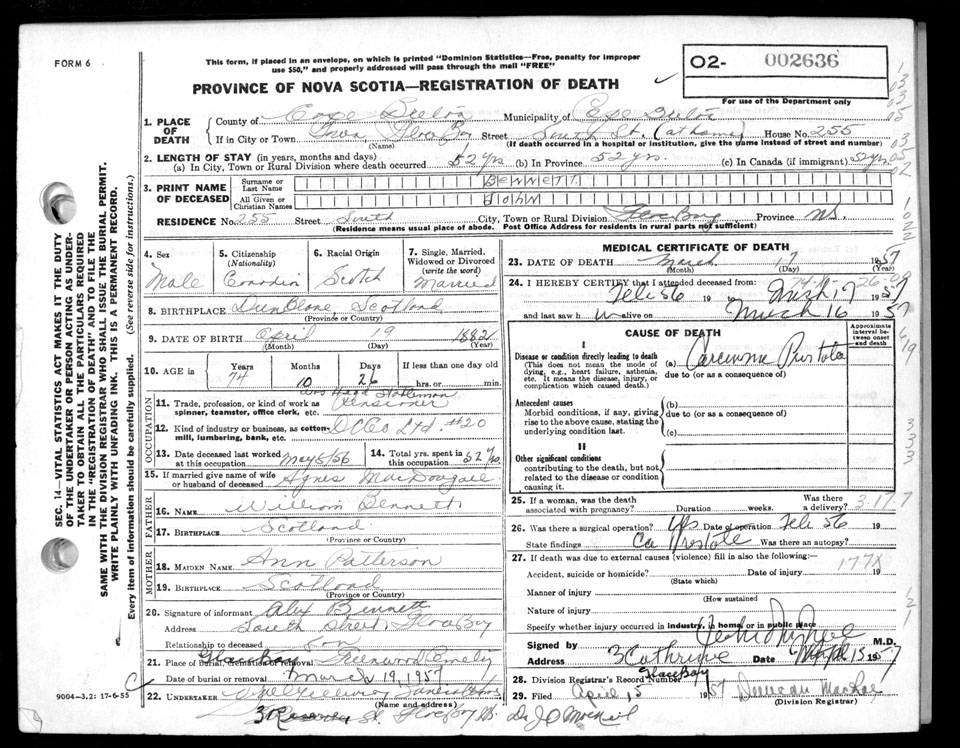 FORM 6
This form, if placed in an envelope, on which is printed "Dominion Statistics—Free, penalty for improper
use $50," and properly addressed will pass through the mail "FREE"
PROVINCE OF NOVA SCOTIA—REGISTRATION OF DEATH
O2- 002636
For use of the Department only
1. PLACE OF DEATH
County of Cape Breton Municipality of Cape Breton
If in City or Town Town Glace Bay Street South St. House No. 255
(Name) (If death occurred in a hospital or institution, give the name instead of street and number)
2. LENGTH OF STAY (in years, months and days)
(a) In City, Town or Rural Division where death occurred 52 yrs (b) In Province 52 yrs. (c) In Canada (if immigrant) 52 yrs
3. PRINT NAME OF DECEASED
Surname or Last Name BENNETT
All Given or Christian Names JOHN
RESIDENCE No. 255 Street South City, Town or Rural Division Glace Bay Province N.S.
(Residence means usual place of abode. Post Office Address for residents in rural parts not sufficient)
4. Sex Male
5. Citizenship (Nationality) Canadian
6. Racial Origin Scotch
7. Single, Married, Widowed or Divorced (write the word) Married
8. BIRTHPLACE DunBlane, Scotland
(Province or Country)
9. DATE OF BIRTH April 19 1882
(Month) (Day) (Year)
10. AGE in Years 74 Months 10 Days 26 If less than one day old hrs. or min.
OCCUPATION
was Head Stableman
11. Trade, profession, or kind of work as spinner, teamster, office clerk, etc. Pensioner
12. Kind of industry or business, as cotton-mill, lumbering, bank, etc. D C Co Ltd. #20
13. Date deceased last worked at this occupation May 8/56
14. Total yrs. spent in this occupation 52 yrs
15. If married give name of wife or husband of deceased Agnes MacDougall
FATHER
16. NAME William Bennett
17. BIRTHPLACE Scotland
(Province or Country)
MOTHER
18. MAIDEN NAME Ann Patterson
19. BIRTHPLACE Scotland
(Province or Country)
20. Signature of informant Alex Bennett
Address South Street, Glace Bay
Relationship to deceased Son
21. Place of Burial, Cremation or removal Glace Bay Greenwood Cemetery
Date of burial or removal March 19, 1957
22. UNDERTAKER
(Name and address)
St. Glace Bay N.S.
MEDICAL CERTIFICATE OF DEATH
23. DATE OF DEATH March 17 1957
(Month) (Day) (Year)
74-10-26
24. I HEREBY CERTIFY that I attended deceased from:
Feb 56 19 to March 17 1957
and last saw h im alive on March 16 1957
CAUSE OF DEATH
Approximate interval between onset and death
I
Disease or condition directly leading to death
(This does not mean the mode of dying, e.g., heart failure, asthenia, etc. It means the disease, injury, or complication which caused death.)
(a) Carcinoma Prostate
due to (or as a consequence of)
Antecedent causes
Morbid conditions, if any, giving rise to the above cause, stating the underlying condition last.
(b)
due to (or as a consequence of)
(c)
II
Other significant conditions
contributing to the death, but not related to the disease or condition causing it.
25. If a woman, was the death associated with pregnancy? Duration weeks. Was there a delivery? 3-17-7
26. Was there a surgical operation? Yes Date of operation Feb 56 19
State findings Ca Prostate Was there an autopsy?
27. If death was due to external causes (violence) fill in also the following:
177X
Accident, suicide or homicide? Date of injury 19
(State which)
Manner of injury
(How sustained
Nature of injury
Specify whether injury occurred in industry, in home, or in public place
Signed by M.D.
Address 3 Cathrine Date 15 1957
Glace Bay
28. Division Registrar's Record Number
29. Filed April 15 1957 Duncan MacRae
(Division Registrar)
SEC. 14—VITAL STATISTICS ACT MAKES IT THE DUTY
OF THE UNDERTAKER OR PERSON ACTING AS UNDER-
TAKER TO OBTAIN ALL THE PARTICULARS REQUIRED
IN THE "REGISTRATION OF DEATH" AND TO FILE THE
SAME WITH THE DIVISION REGISTRAR WHO SHALL ISSUE THE BURIAL PERMIT.
WRITE PLAINLY WITH UNFADING INK. THIS IS A PERMANENT RECORD.
Every item of information should be carefully supplied. (See reverse side for instructions.)
9004—3.2: 17-6-55